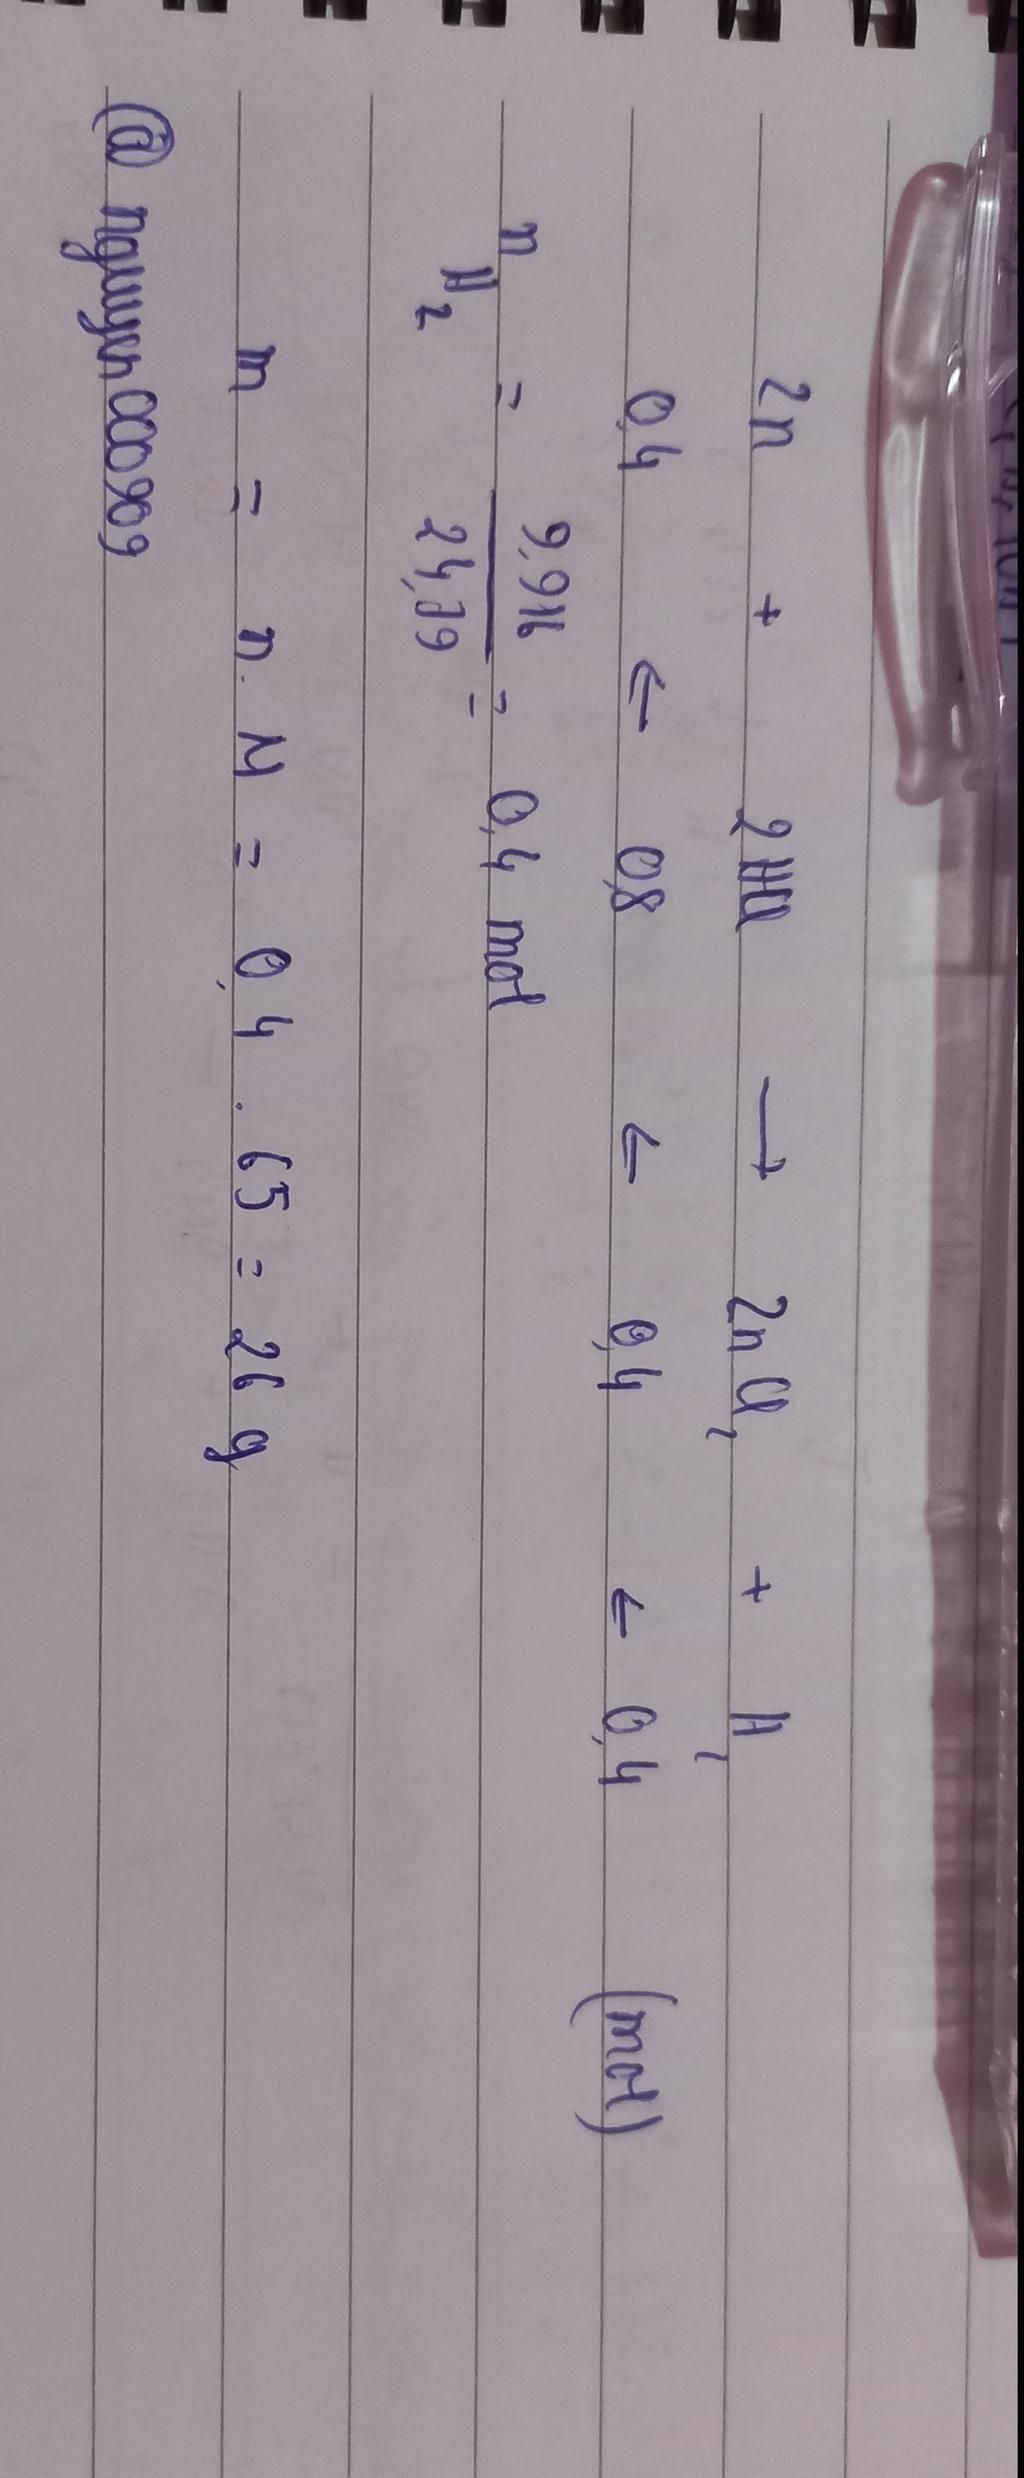 Zn + 2HCl → ZnCl₂ + H₂
0,4 ← 0,8 ← 0,4 ← 0,4 (mol)
n H₂ = 9,916 / 24,79 = 0,4 mol
m = n. M = 0,4 . 65 = 26 g
@nguyen000909